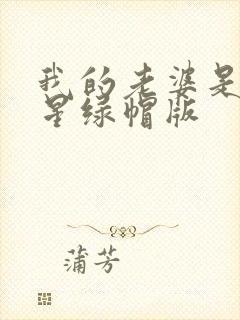 我的老婆是
星绿帽版
蒲芳